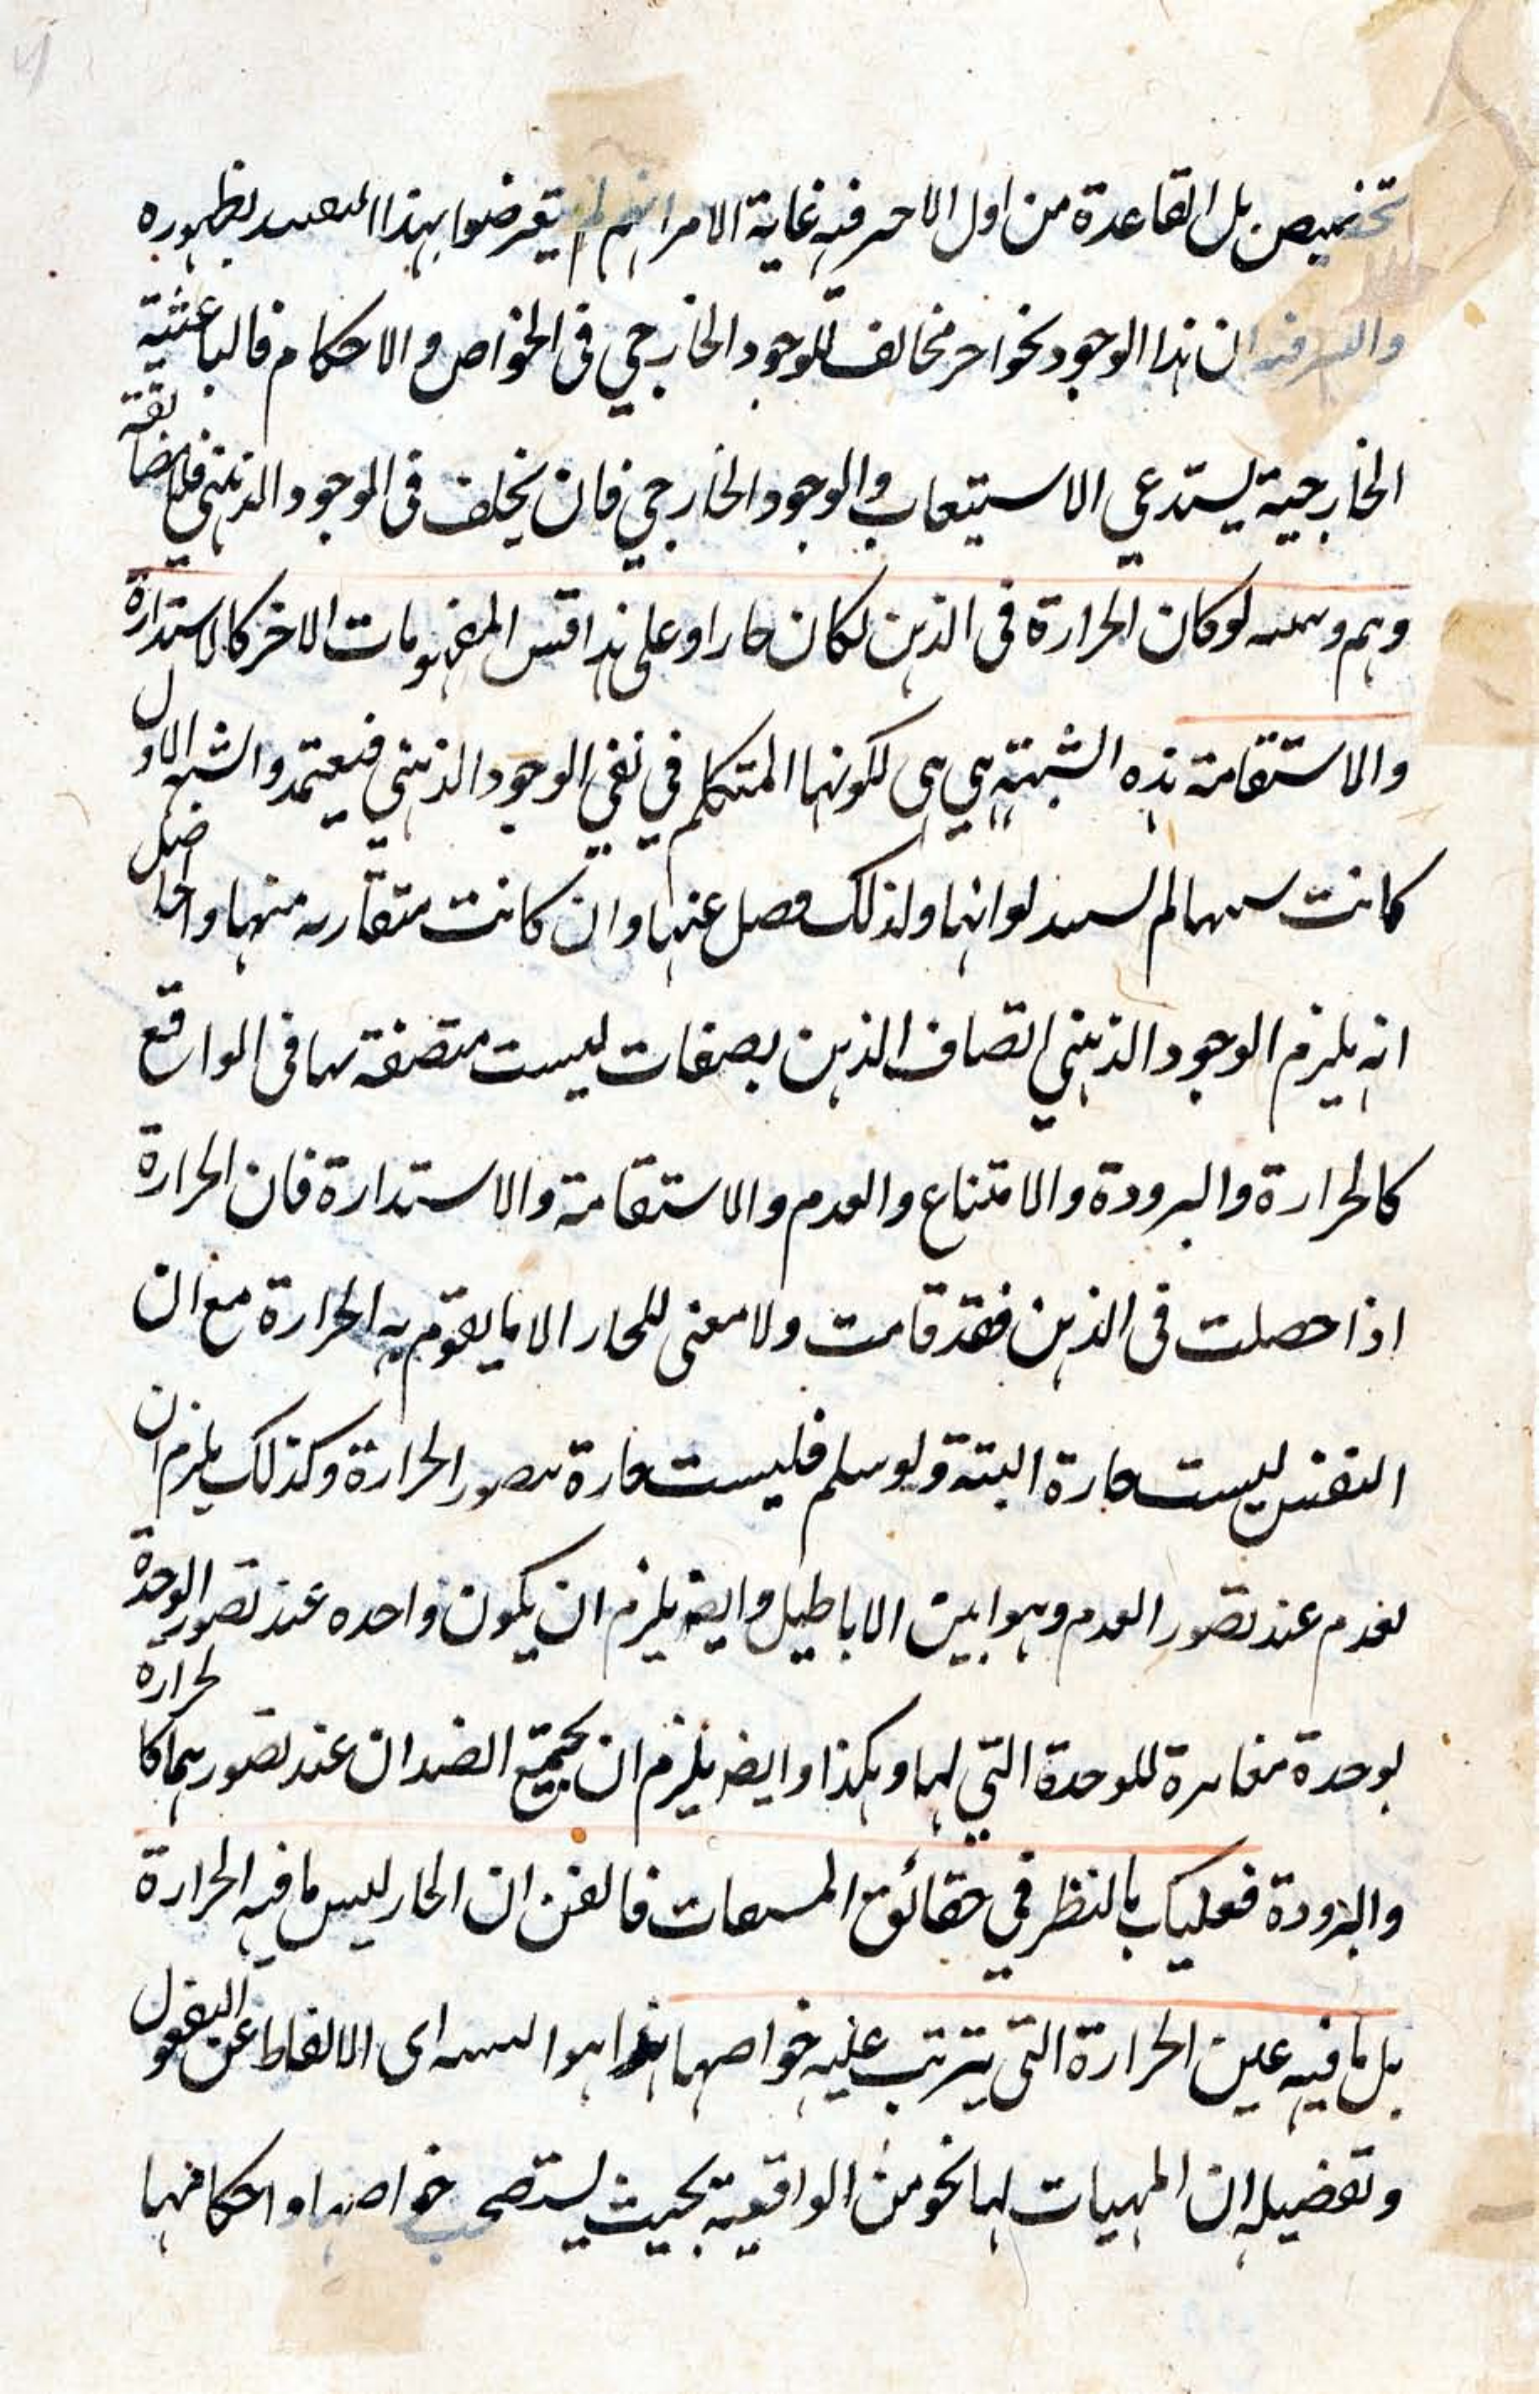 تخصيص بل القاعدة من اول الامر فيه غاية الامر انهم لم يتعرضوا بهذا لظهوره
ان هذا الوجود نحو اخر مخالف للوجود الخارجي في الخواص و الاحكام فالباعثية
الخارجية يستدعي الاستيعاب في الوجود الخارجي فان يخلف في الموجود الذهني فلا مضائقة
وهم و لو كان الحرارة في الذهن لكان حارا و على هذا قس المفهومات الاخر كالاستدارة
والاستقامة هذه الشبهة هي هي لكونها المتكلم في نفي الوجود الذهني فيعتمدو الشبه الاول
كانت لم لوانها ولذلك فصل عنها وان كانت متقاربه منها والحاصل
انه يلزم الوجود الذهني اتصاف الذهن بصفات ليست متصفة بها في الواقع
كالحرارة والبرودة والامتناع والعدم والاستقامة والاستدارة فان الحرارة
اذا حصلت في الذهن فقد قامت ولا معنى للحار الا ما يقوم به الحرارة مع ان
النفس ليست حارة البتة ولو سلم فليست حارة بتصور الحرارة وكذلك يلزم ان
تعدم عند تصور العدم وهو ابين الاباطيل وايضه يلزم ان يكون واحده عند تصور الوحدة
بوحدة مغايرة للوحدة التي لها وهكذا وايضه يلزم ان يجتمع الضدان عند تصورهما كالحرارة
والبرودة فعليك بالنظر في حقائق المشتقات فالقن ان الحار ليس ما فيه الحرارة
بل ما فيه عين الحرارة التي يترتب عليه خواصها هذا هو اى الالفاظ عن
وتفضيله ان المهيات لها نحو من الواقعية بحيث يستصحب خواصها و احكامها